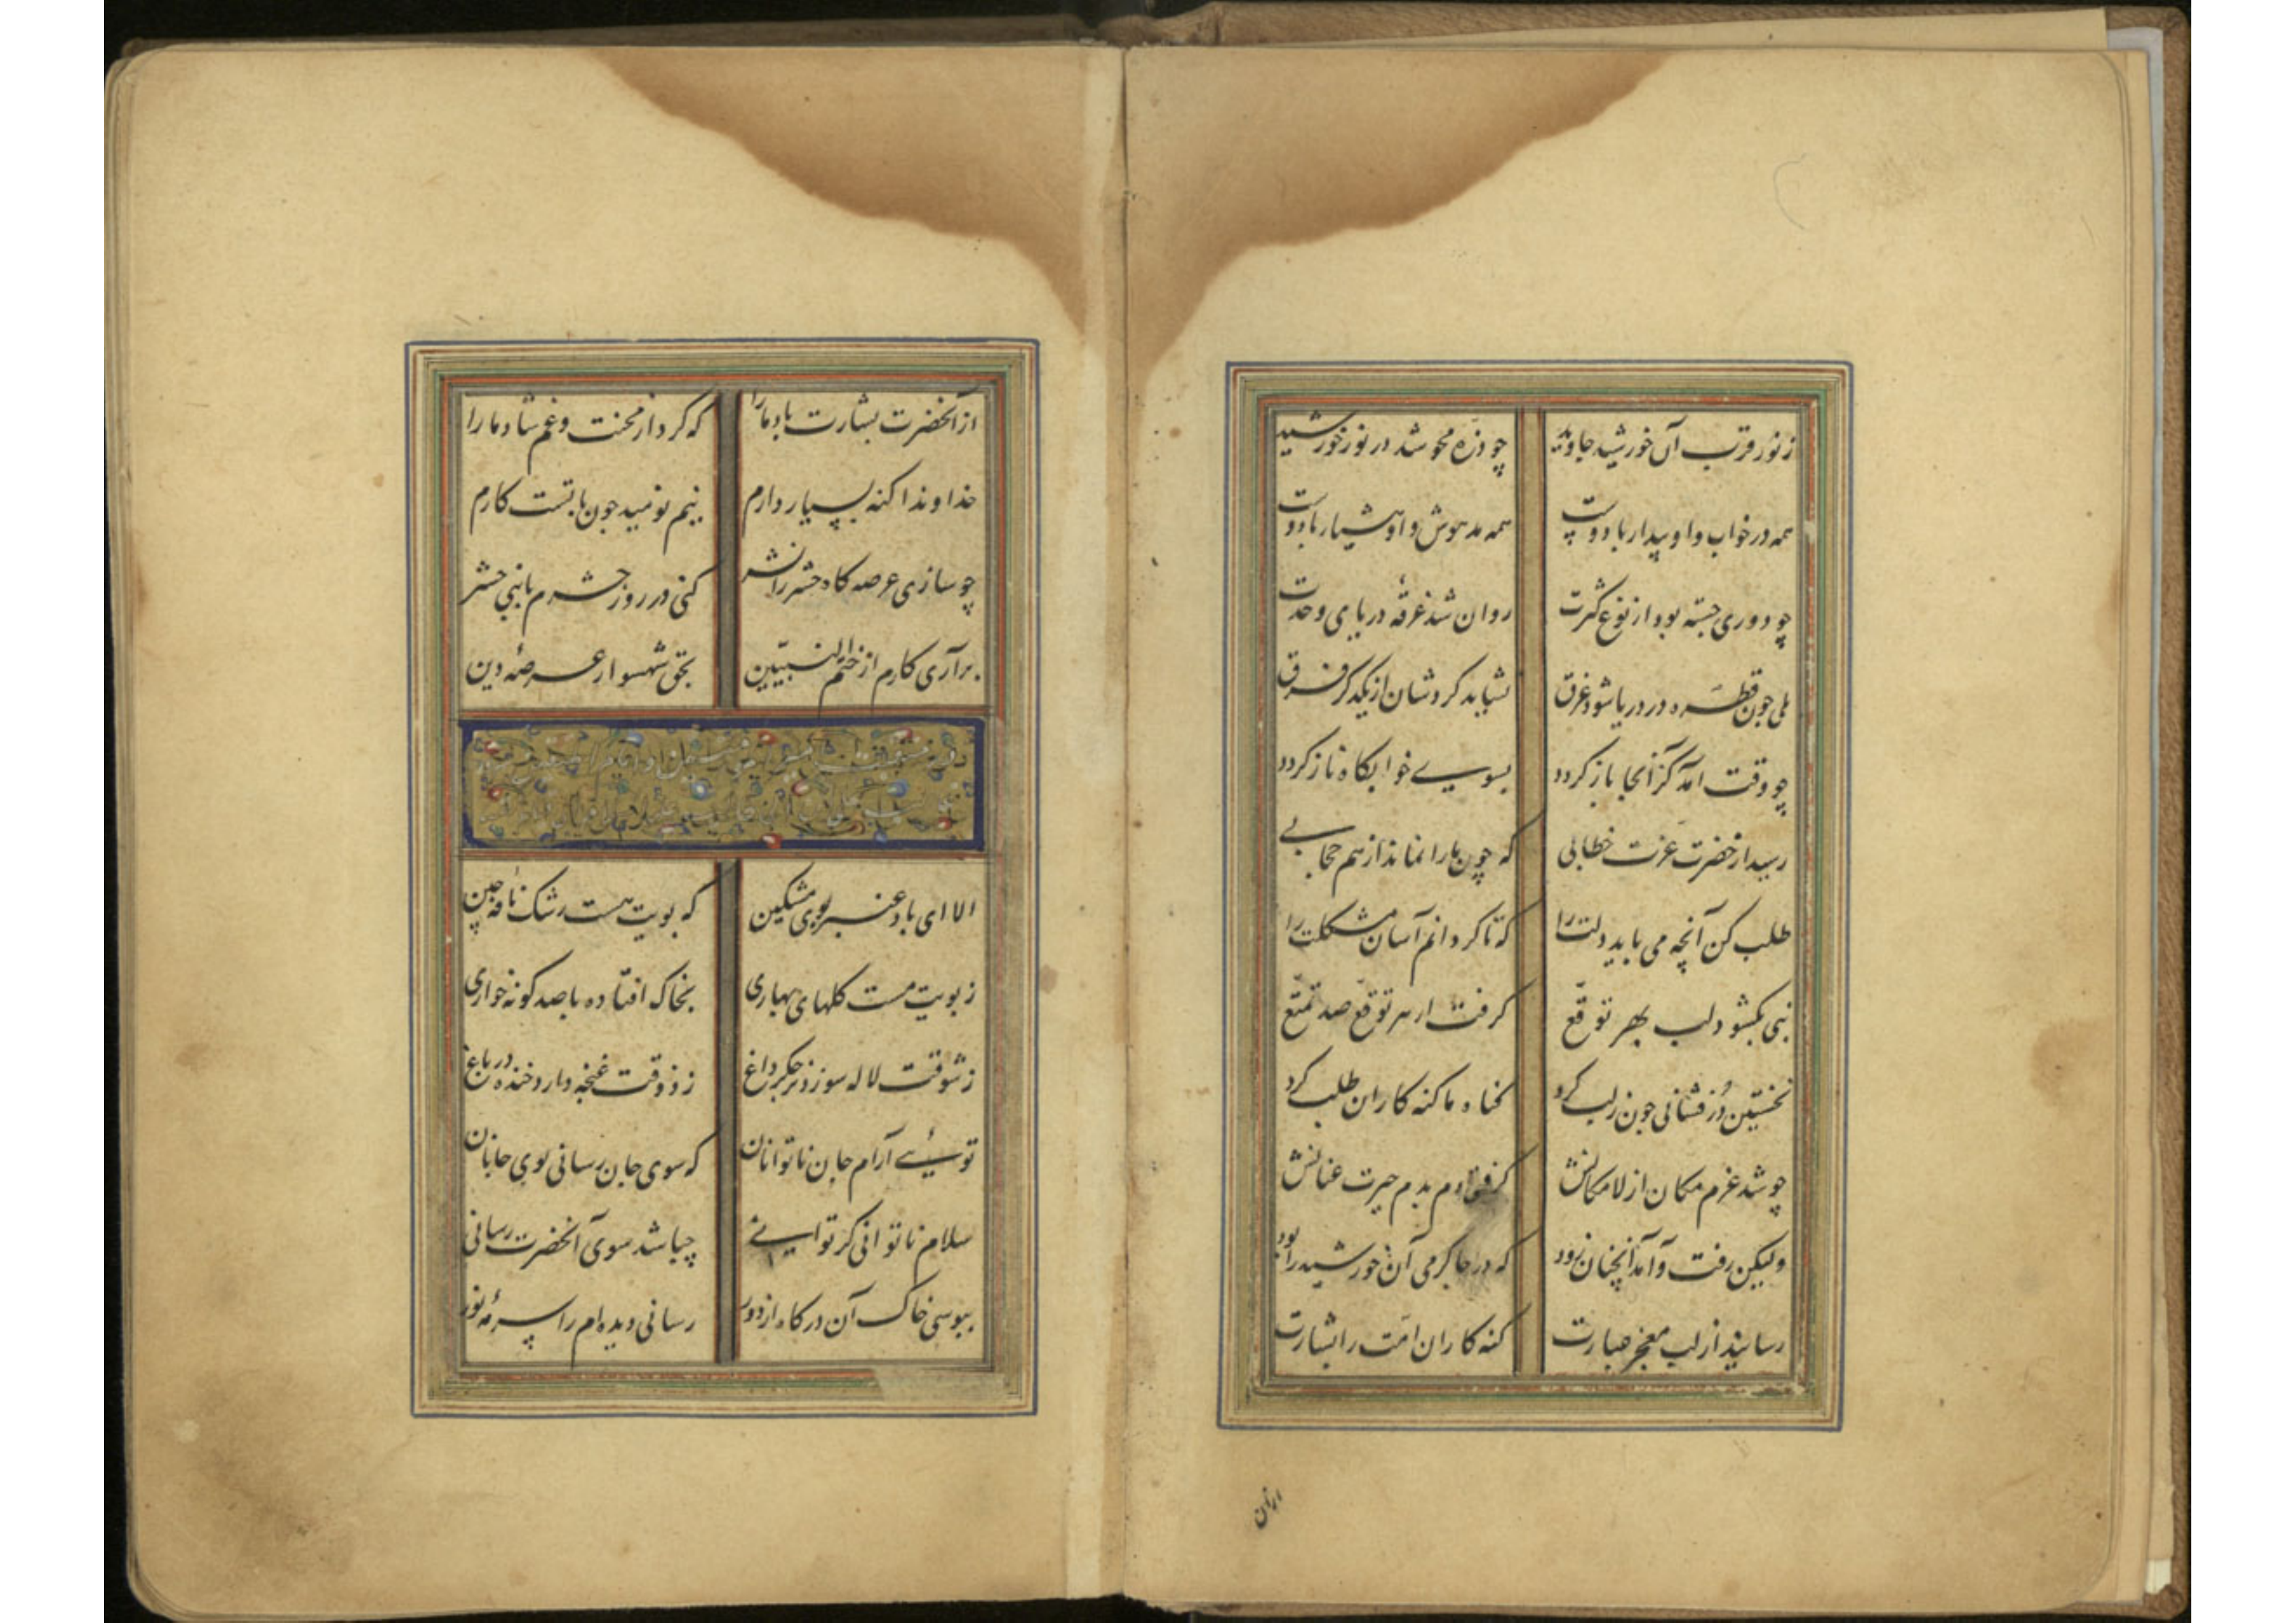 ز نور قرب آن خورشید جاوید چو ذره محو شد در نور خورشید
همه در خواب و او بیدار با دوست همه مدهوش و او هشیار با دوست
چو دوری جسته بود از نوع کثرت روان شد غرقهٔ دریای وحدت
بلی جون قطره در دریا شود غرق نشاید کردشان از یکدکر فرق
چو وقت آمد کز آنجا باز کردد بسوی خوابکاه ناز کردد
رسید از حضرت عزت خطابی که چون ما را نماند از هم حجابی
طلب کن آنچه می باید دلت را که تا کردانم آسان مشکلت را
نبی بکشود لب بهر توقع کرفت از هر توقع صد تمتع
نخستین درفشانی جون ز لب کرد کناه ما کنه کاران طلب کرد
چو شد عزم مکان از لامکانش کرفتی دم بدم حیرت عنانش
ولیکن رفت و آمد آنچنان زود که در جا کرمی آن خورشید را بود
رسانید از لب معجز عبارت کنه کاران امت را بشارت
ازان
از آنحضرت بشارت باد ما را که کرد از محنت و غم شاد ما را
خداوندا کنه بسیار دارم نیم نومید جون با تست کارم
چو سازی عرصه کاه حشر را نشر کنی در روز حشرم با نبی حشر
برآری کارم از ختم النبیین بحق شهسوار عرصهٔ دین
الا ای باد عنبربوی مشکین که بویت هست رشک نافه چین
ز بویت مست کلهای بهاری بخاک افتاده با صد کونه خواری
ز شوقت لاله سوزد بر جکر داغ ز ذوقت غنچه دارد خنده در باغ
توئی آرام جان ناتوانان که سوی جان رسانی بوی جانان
سلام ناتوانی کر توانی چباشد سوی آنحضرت رسانی
ببوسی خاک آن درکاه از دور رسانی دیده ام را سرمهٔ نور